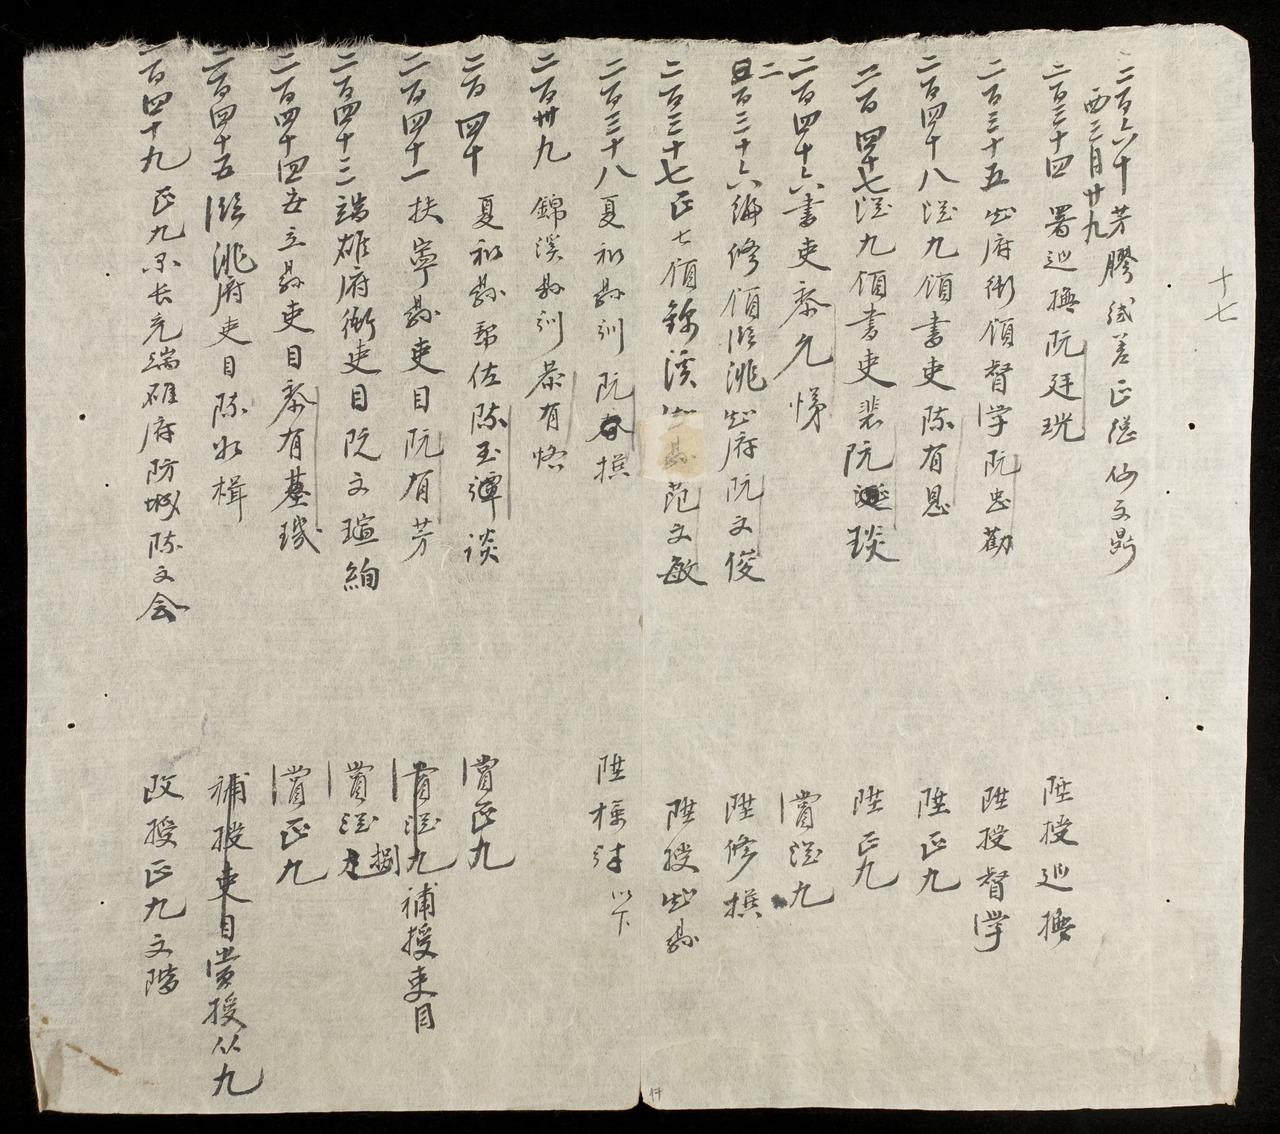 十七
二百六十 芳膠 善正 仙文鼎
西三月廿九
二百三十四 署巡撫阮廷珖 陞授巡撫
二百三十五 知府衔領督学阮忠勸 陞授督学
二百四十八 從九領書吏陈有恩 陞正九
二百四十七 從九領書吏裴阮琰 陞正九
二百四十六 書吏黎允悌 賞從九
二百三十六 編修領臨洮知府阮文俊 陞修撰
二百三十七 正七領錦溪知縣范文敏 陞授知縣
二百三十八 夏和縣訓阮春撰 陞檢討 以下
二百卅九 錦溪縣訓恭有恪
二百四十 夏和縣帮佐陈玉譚談 賞正九
二百四十一 扶寧縣吏目阮有芳 賞從九補授吏目
二百四十三 端雄府衙吏目阮文瑄絢 賞從九捌
二百四十四 立縣吏目黎有璣 賞正九
二百四十五 臨洮府吏目陈如楫 補授吏目賞授从九
二百四十九 正九宗长充端雄府防城陈文会 改授正九文階
17